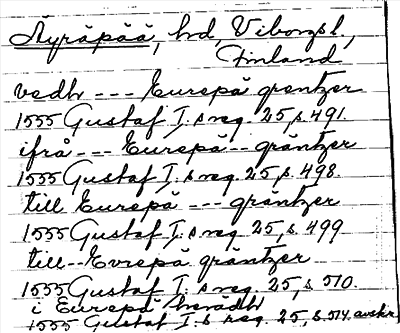 Äyräpää, hd, Viborgsl.,
Finland
vedh --- Eurepä grentzer
1555 Gustaf I:s reg. 25, s. 491.
ifrå --- Eurepä -- gräntzer
1555 Gustaf I:s reg. 25, s. 498.
till Eurepä --- gräntzer
1555 Gustaf I:s reg. 25, s. 499
till -- Evrepä gräntzer
1555 Gustaf I:s reg. 25, s. 510.
i Eurepä herädh
1555 Gustaf I:s reg. 25, s. 514. avskr.